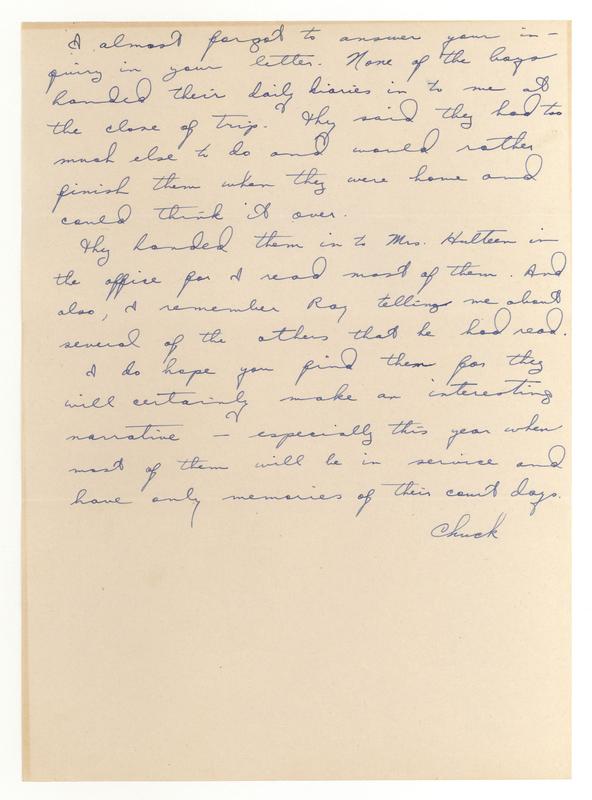 I almost forgot to answer your in-
quiry in your letter. None of the boys
handed their daily diaries in to me at
the close of trip. They said they had too
much else to do and would rather
finish them when they were home and
could think it over.
They handed them in to Mrs. Hulteen in
the office for I read most of them. And
also, I remember Ray telling me about
several of the others that he had read.
I do hope you find them for they
will certainly make an interesting
narrative - especially this year when
most of them will be in service and
have only memories of their court days.
Chuck